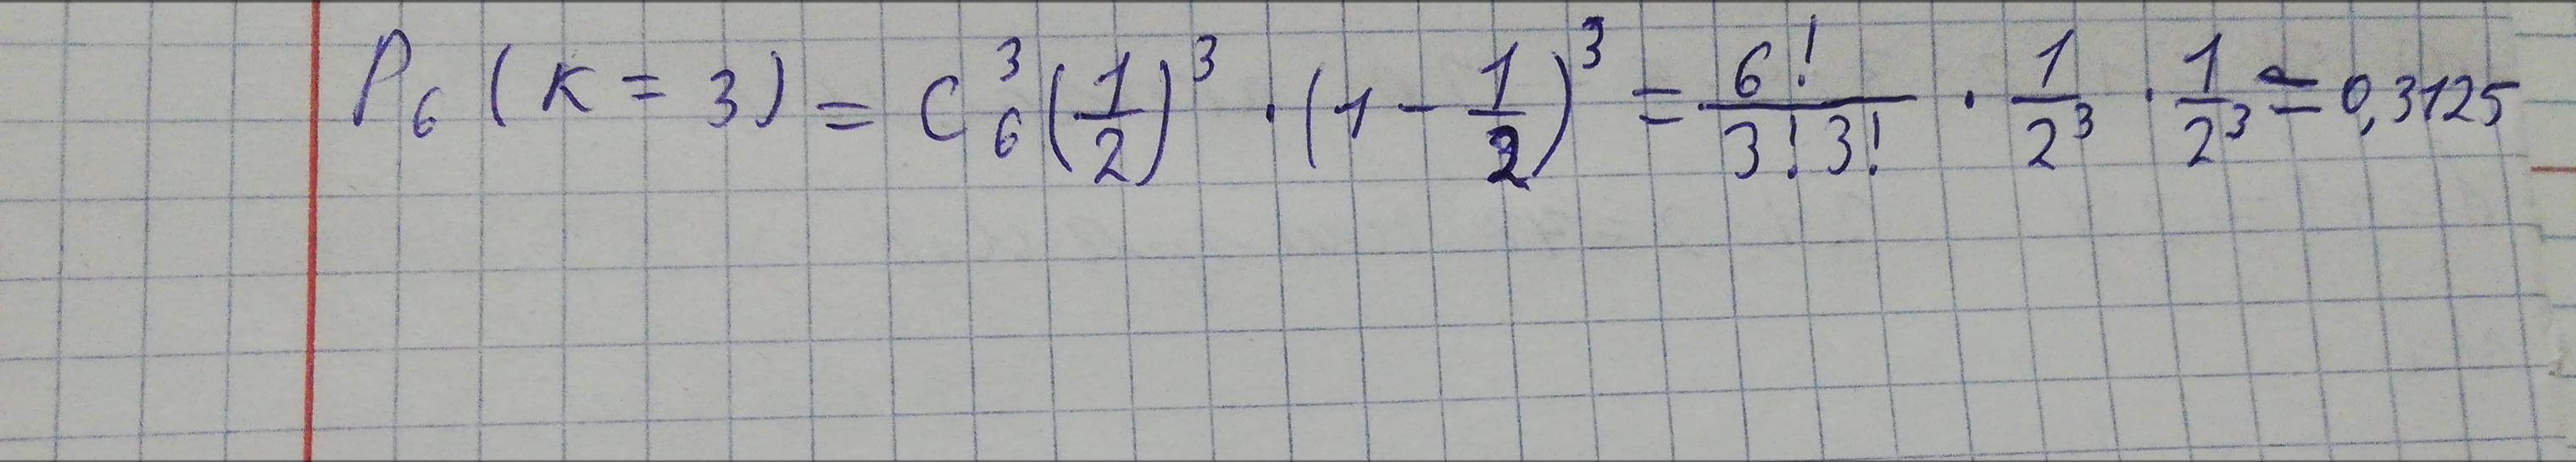 P₆(k = 3) = C₆³(1/2)³ · (1 - 1/2)³ = 6!/3!3! · 1/2³ · 1/2³ ≃ 0,3125